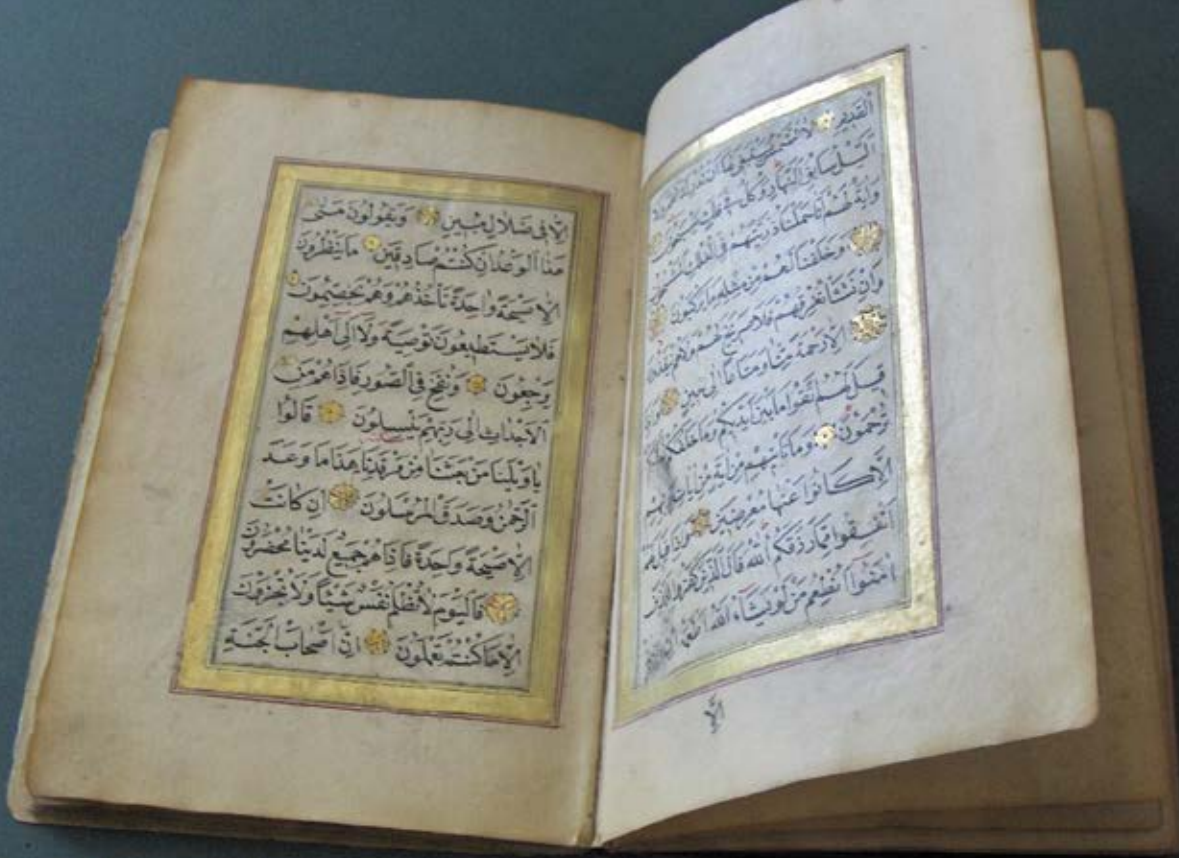 اَلْقَدِيمِ لَا الشَّمْسُ يَنْبَغِي لَهَا اَنْ تُدْرِكَ الْقَمَرَ وَلَا
اَلَّيْلُ سَابِقُ النَّهَارِ وَكُلٌّ فِي فَلَكٍ يَسْبَحُونَ
وَاٰيَةٌ لَهُمْ اَنَّا حَمَلْنَا ذُرِّيَّتَهُمْ فِي الْفُلْكِ الْمَشْحُونِ
وَخَلَقْنَا لَهُمْ مِنْ مِثْلِهِ مَا يَرْكَبُونَ
وَاِنْ نَشَأْ نُغْرِقْهُمْ فَلَا صَرِيخَ لَهُمْ وَلَا هُمْ يُنْقَذُونَ
اِلَّا رَحْمَةً مِنَّا وَمَتَاعًا اِلٰى حِينٍ وَاِذَا
قِيلَ لَهُمُ اتَّقُوا مَا بَيْنَ اَيْدِيكُمْ وَمَا خَلْفَكُمْ لَعَلَّكُمْ
تُرْحَمُونَ وَمَا تَأْتِيهِمْ مِنْ اٰيَةٍ مِنْ اٰيَاتِ رَبِّهِمْ
اِلَّا كَانُوا عَنْهَا مُعْرِضِينَ وَاِذَا قِيلَ لَهُمْ
اَنْفِقُوا مِمَّا رَزَقَكُمُ اللّٰهُ قَالَ الَّذِينَ كَفَرُوا لِلَّذِينَ
اٰمَنُوا اَنُطْعِمُ مَنْ لَوْ يَشَاءُ اللّٰهُ اَطْعَمَهُ اِنْ اَنْتُمْ
اِلَّا
اِلَّا فِي ضَلَالٍ مُبِينٍ وَيَقُولُونَ مَتٰى
هٰذَا الْوَعْدُ اِنْ كُنْتُمْ صَادِقِينَ مَا يَنْظُرُونَ
اِلَّا صَيْحَةً وَاحِدَةً تَأْخُذُهُمْ وَهُمْ يَخِصِّمُونَ
فَلَا يَسْتَطِيعُونَ تَوْصِيَةً وَلَا اِلٰى اَهْلِهِمْ
يَرْجِعُونَ وَنُفِخَ فِي الصُّورِ فَاِذَا هُمْ مِنَ
الْاَجْدَاثِ اِلٰى رَبِّهِمْ يَنْسِلُونَ قَالُوا
يَا وَيْلَنَا مَنْ بَعَثَنَا مِنْ مَرْقَدِنَا هٰذَا مَا وَعَدَ
الرَّحْمٰنُ وَصَدَقَ الْمُرْسَلُونَ اِنْ كَانَتْ
اِلَّا صَيْحَةً وَاحِدَةً فَاِذَا هُمْ جَمِيعٌ لَدَيْنَا مُحْضَرُونَ
فَالْيَوْمَ لَا تُظْلَمُ نَفْسٌ شَيْئًا وَلَا تُجْزَوْنَ
اِلَّا مَا كُنْتُمْ تَعْمَلُونَ اِنَّ اَصْحَابَ الْجَنَّةِ